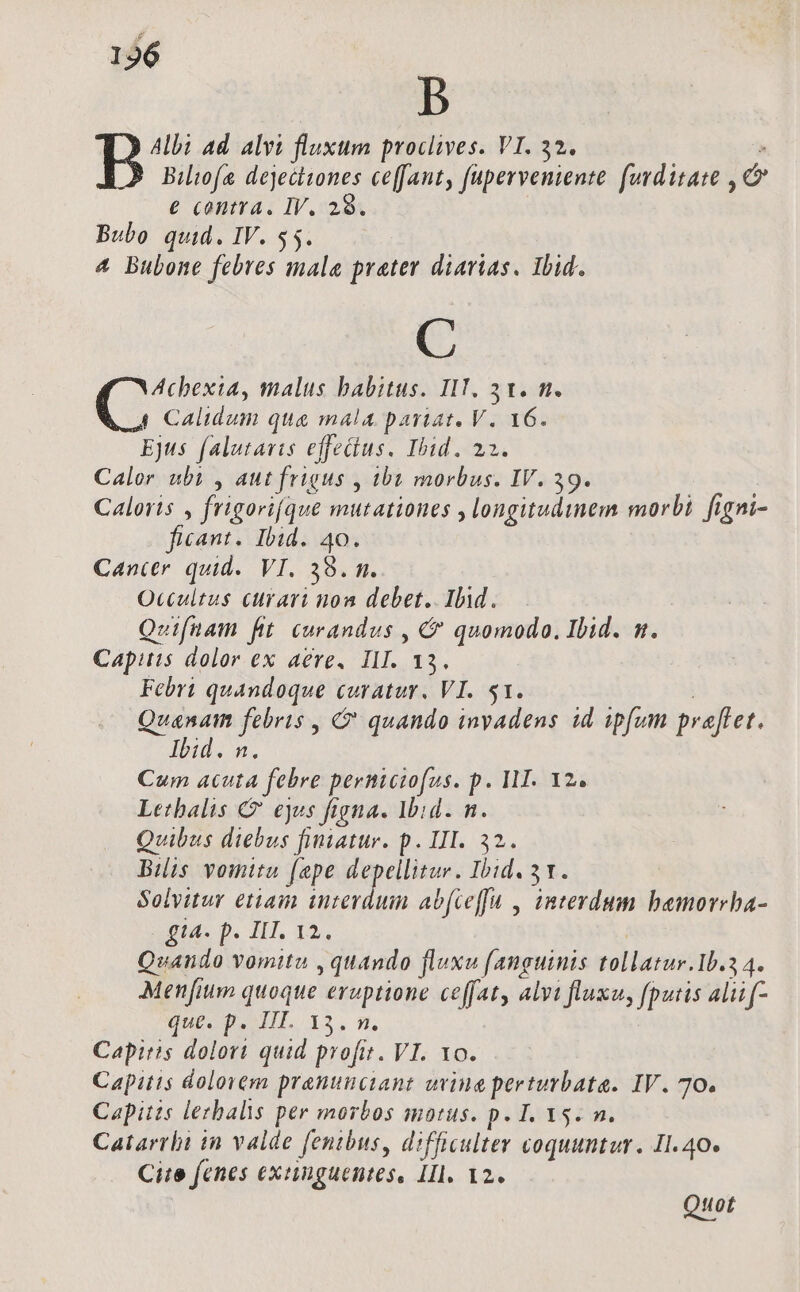 196
B
BAlbi ad alvi fluxum proclives. VI. 32.
Bilioſæ dejectiones ceſſant, ſuperveniente ſurditate , &
e contra. IV. 28.
Bubo quid. IV. 55.
A Bubone febres malæ præter diarias. Ibid.
C
CAchexia, malus habitus. III. 31. n.
Calidum quæ mala pariat. V. 16.
Ejus ſalutaris effectus. Ibid. 22.
Calor ubi , aut frigus , ibi morbus. IV. 39.
Caloris , frigoriſque mutationes , longitudinem morbi ſigni-
ficant. Ibid. 40.
Cancer quid. VI. 38. n.
Occultus curari non debet. Ibid.
Quiſnam ſit curandus , & quomodo. Ibid. n.
Capitis dolor ex aëre. III. 13.
Febri quandoque curatur. VI. 51.
Quænam febris , & quando invadens id ipſum præſtet.
Ibid. n.
Cum acuta febre pernicioſus. p. III. 12.
Lethalis & ejus ſigna. Ibid. n.
Quibus diebus finiatur. p. III. 32.
Bilis vomitu ſæpe depellitur. Ibid. 31.
Solvitur etiam interdum abſceſſu , interdum hæmorrha-
gia. p. III. 12.
Quando vomitu , quando fluxu ſanguinis tollatur. Ib. 34.
Menſium quoque eruptione ceſſat, alvi fluxu, ſputis aliiſ-
que. p. III. 13. n.
Capitis dolori quid proſit. VI. 10.
Capitis dolorem prænunciant urinæ perturbatæ. IV. 70.
Capitis lethalis per morbos motus. p. I. 15. n.
Catarrhi in valde ſenibus, difficulter coquuntur. II. 40.
Cito ſenes extinguentes. III. 12.
Quot